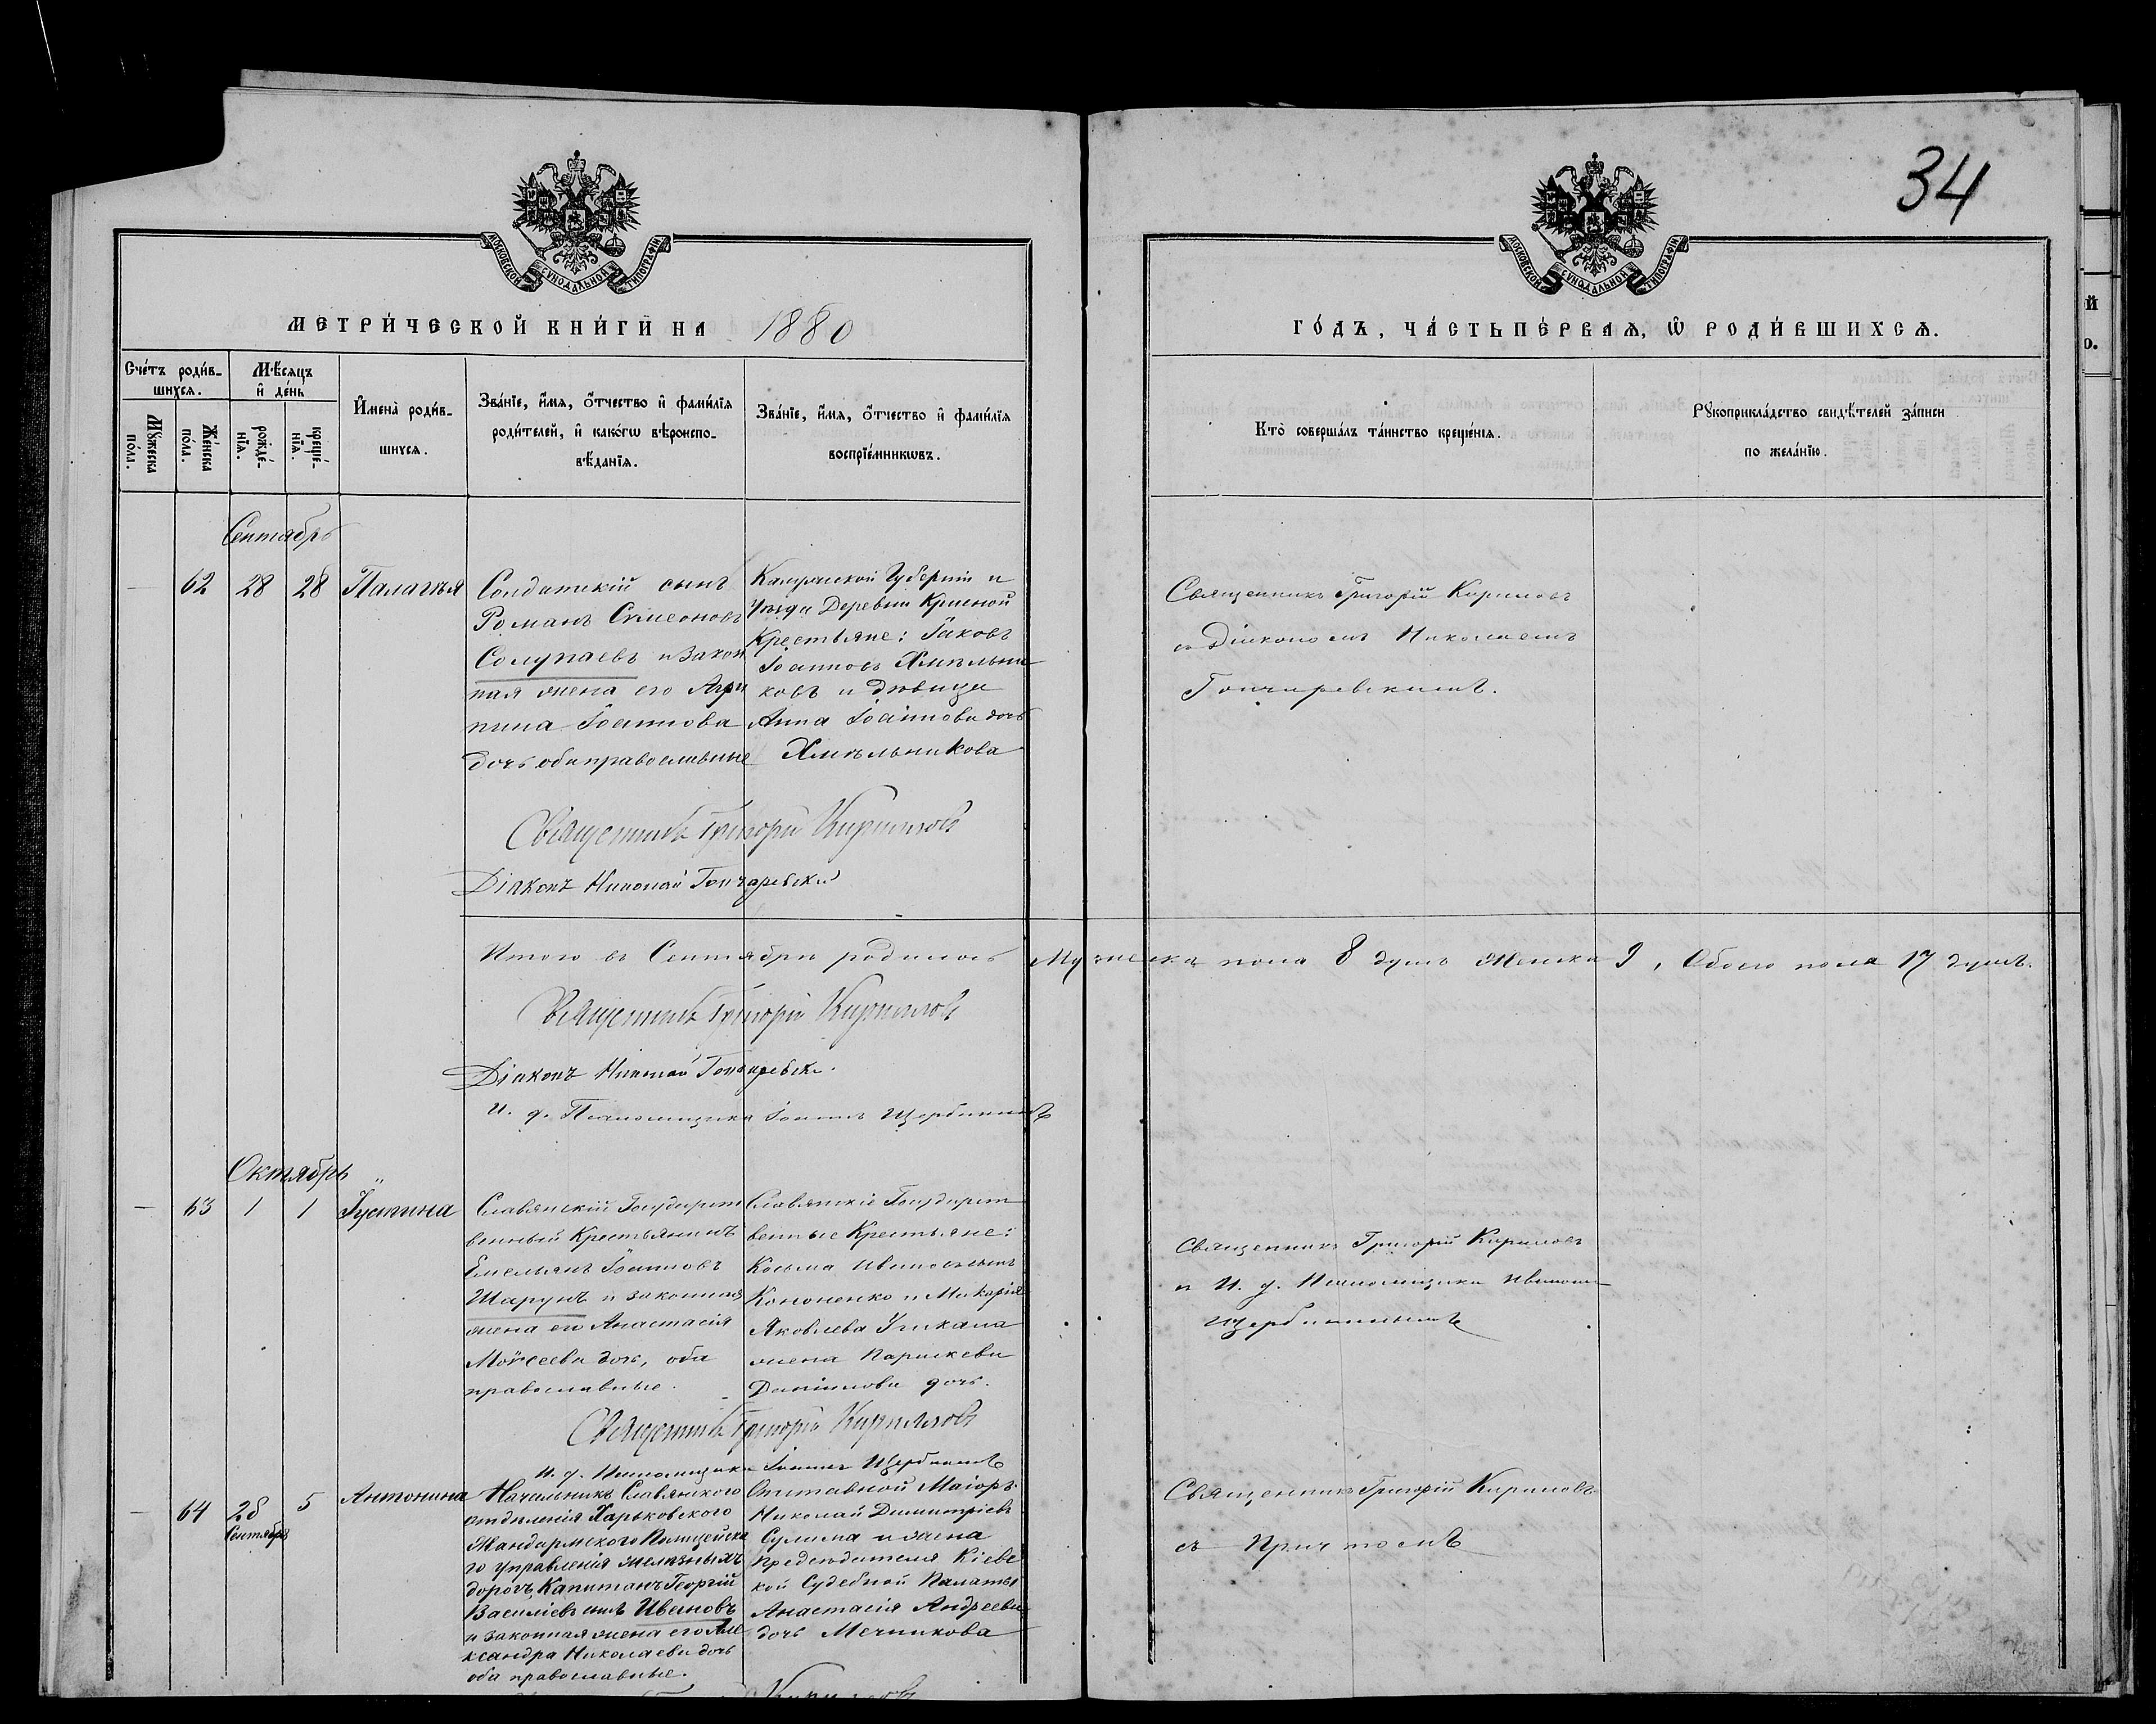 34
МОСКОВСКОЙ СѴНОДАЛЬНОЙ ТИПОГРАФІИ
МОСКОВСКОЙ СѴНОДАЛЬНОЙ ТИПОГРАФІИ
МЕТРИ́ЧЕСКОЙ КНИ́ГИ НА 1880
ГО́ДЪ, ЧА́СТЬ ПЕ́РВАѦ, Ѡ҆ РОДИ́ВШИХСѦ.
Сче́тъ роди́в-
шихсѧ.
Мꙋжеска по́ла.
Же́нска по́ла.
Мѣ́сѧцъ
и҆ де́нь
рожде́-
нїѧ.
креще́-
нїѧ.
И҆мена̀ роди́в-
шихсѧ.
Зва́нїе, и҆́мѧ, ѻ҆́тчество и҆ фами́лїѧ
роди́телей, и҆ како́гѡ вѣроиспо-
вѣ́данїѧ.
Зва́нїе, и҆́мѧ, ѻ҆́тчество и҆ фами́лїѧ
воспрїе́мникѡвъ.
Кто̀ соверша́лъ та́инство креще́нїѧ.
Рꙋкоприкла́дство свидѣ́телей за́писи
по жела́нїю.
Сентябрь
— 62 28 28 Палагѣя
Солдатскій сынъ
Романъ Симеоновъ
Солупаевъ и закон
ная жена его Агри
пина Іоаннова
дочь оба православные
Калужской Губерніи и
Уѣзда Деревни Красной
Крестьяне: Іаковъ
Іоанновъ Хмѣльни-
ковъ и дѣвица
Анна Іоаннова дочь
Хмѣльникова
Священникъ Григорій Кириловъ
съ Діакономъ Николаемъ
Гончаревскимъ.
Священникъ Григорій Кирилловъ
Діаконъ Николай Гончаревскій
Итого въ Сентябрѣ родилось Мужеска пола 8 душъ Женска 9, Обоего пола 17 душъ.
Священникъ Григорій Кирилловъ
Діаконъ Николай Гончаревскій.
И. д. Псаломщика Іоаннъ Щербининъ
Октябрь
— 63 1 1 Іустина
Славянскій Государст
венный Крестьянинъ
Емельянъ Іоанновъ
Шарунъ и законная
жена его Анастасія
Моѵсеева дочь, оба
православные.
Славянскіе Государст-
венные Крестьяне:
Косьма Ивановъ сынъ
Кононенко и Макарія
Яковлева
жена Параскева
Даниилова дочь.
Священникъ Григорій Кириловъ
и И. д. Псаломщика Иваномъ
Щербининымъ
Священникъ Григорій Кирилловъ
И. д. Псаломщика Іоаннъ Щербининъ
— 64 28 5 Антонина
Сентября
Начальникъ Славянского
отдѣленія Харьковского
Жандармского Полицейска
го управленія желѣзныхъ
дорогъ, Капитанъ Георгій
Василіевъ сынъ Ивановъ
и законная жена его Але
ксандра Николаева дочь
оба православные.
Отставной Маіоръ
Николай Димитріевъ
Сулима и жена
Предсѣдателя Кіевс
кой Судебной Палаты
Анастасія Андреева
дочь Мечникова
Священникъ Григорій Кириловъ
съ Причтомъ